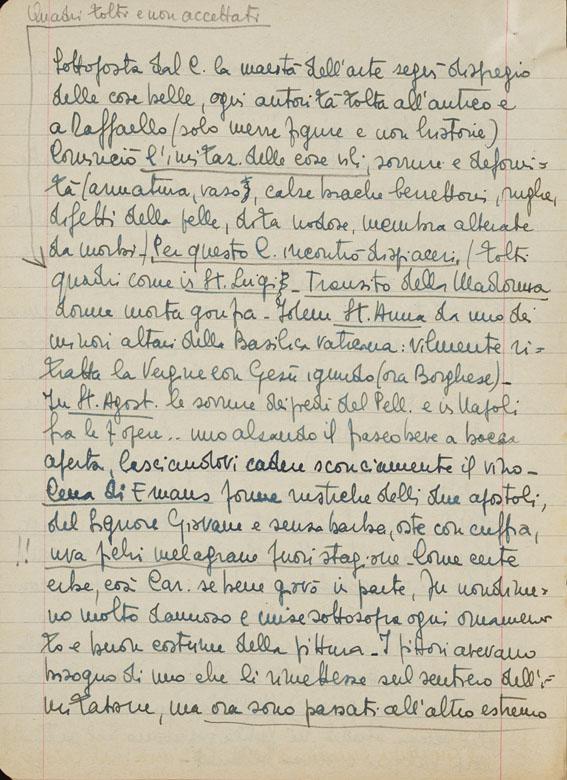 Quadri tolti e non accettati
Sottoposta dal C. la maestà dell'arte seguì dispregio
delle cose belle, ogni autorità tolta all'antico e
a Raffaello (solo mezze figure e non historie)
Cominciò l'imitaz. delle cose vili, sozzure e deformi=
tà (armatura, vaso, calze brache berrettoni, rughe,
difetti della pelle, dita nodose, membra alterate
da morbi) Per questo C. incontrò dispiaceri, (tolti
quadri come in St. Luigi - Transito della Madonna
donna morta gonfia - Idem St. Anna da uno dei
minori altari della Basilica vaticana: vilmente ri=
tratta la Vergine con Gesù ignudo (ora Borghese) -
In St. Agost. le sozzure dei piedi del Pell. e in Napoli
fra le 7 opere .. uno alzando il fiasco beve a bocca
aperta, lasciandovi cadere sconciamente il vino -
Cena di Emaus forme rustiche delli due apostoli,
del Signore Giovane e senza barba, oste con cuffia,
!! uva fichi melagrane fuori stagione - Come certe
erbe, così Car. se bene giovò in parte, fu nondime=
no molto dannoso e mise sottosopra ogni ornamen
to e buon costume della pittura - I pittori avevano
bisogno di uno che li rimettesse sul sentiero dell'i=
mitazione, ma ora sono passati all'altro estremo